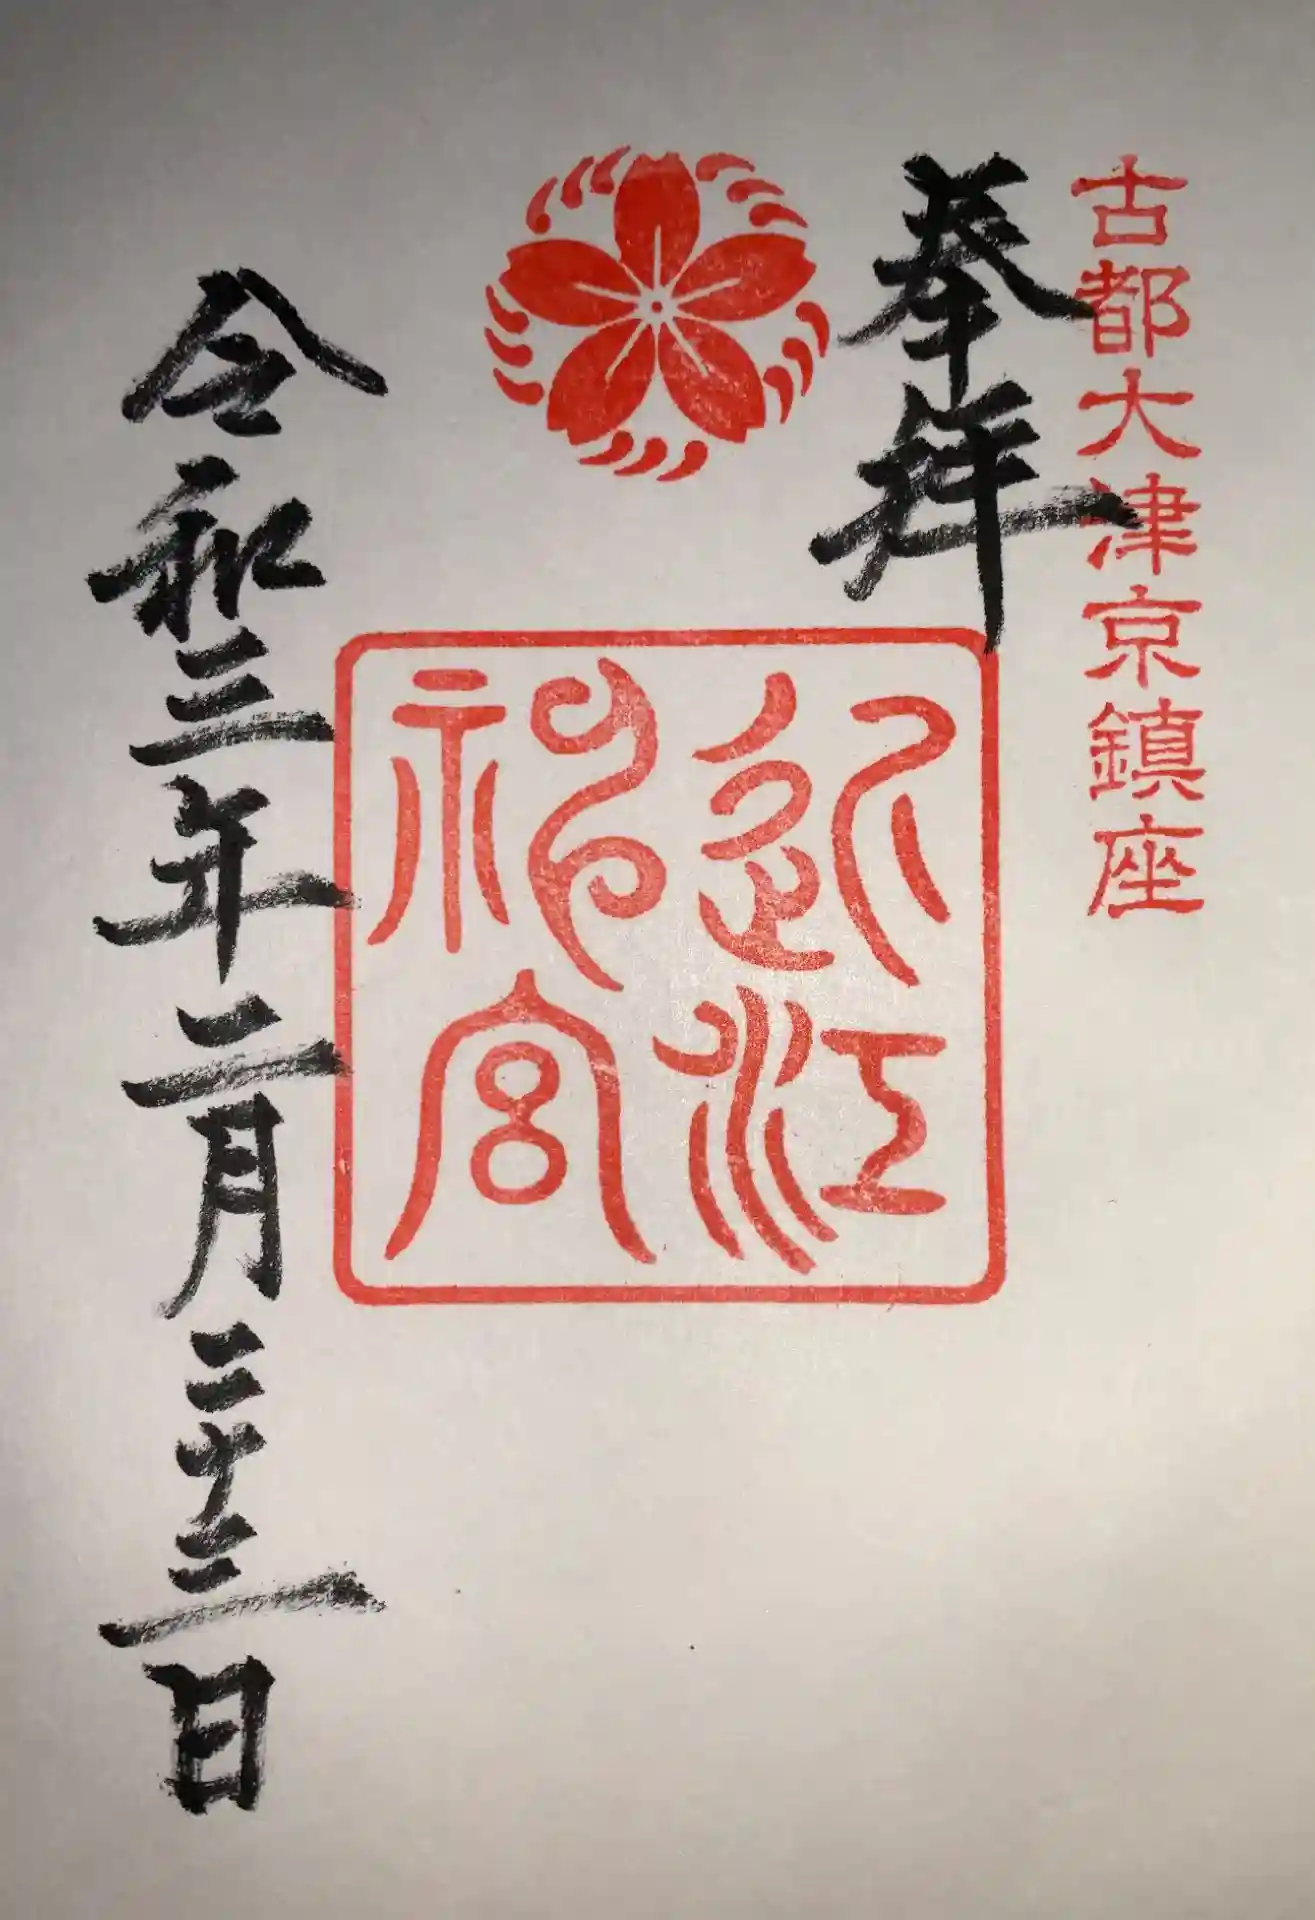 古都大津京鎮座
奉拝
近江
神宮
令和三年二月二十三日